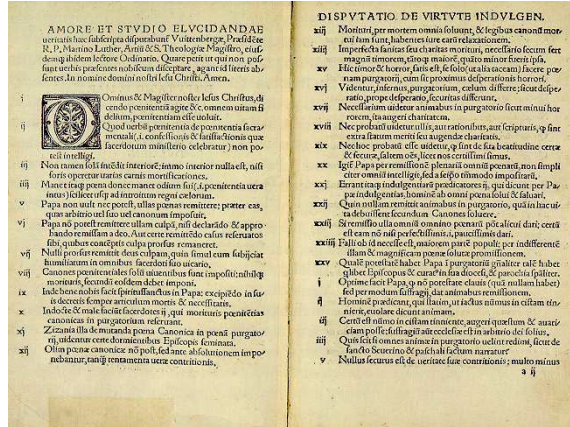 AMORE ET STVDIO ELVCIDANDAE
ueritatis hæc subscripta disputabunť Vuittenbergæ, Præsidẽte
R. P. Martino Luther, Artiũ & S. Theologiæ Magistro, eius-
demq; ibidem lectore Ordinario. Quare petit ut qui non pos-
sunt uerbis præsentes nobiscum disceptare, agant id literis ab-
sentes. In nomine domini nostri Iesu Christi. Amen.
i Ominus & Magister noster Iesus Christus, di
cendo pœnitentiã agite &c. omnem uitam fi
delium, pœnitentiam esse uoluit.
ij Quod uerbũ pœnitentia de pœnitentia sacra
mentali (.i. confessionis & satisfactionis quæ
sacerdotum ministerio celebratur) non po-
test intelligi.
iij Non tamen solã intẽdit interiorẽ: immo interior nulla est, nisi
foris operetur uarias carnis mortificationes.
iiij Manet itaq; pœna donec manet odium sui (.i. pœnitentia uera
intus) scilicet usq; ad introitum regni cælorum.
v Papa non uult nec potest, ullas pœnas remittere: præter eas,
quas arbitrio uel suo uel canonum imposuit.
vj Papa nõ potest remittere ullam culpã, nisi declarãdo & appro-
bando remissam a deo. Aut certe remittẽdo casus reseruatos
sibi, quibus contẽptis culpa prorsus remaneret.
vij Nulli prorsus remittit deus culpam, quin simul eum subijciat
humiliatum in omnibus sacerdoti suo uicario.
viij Canones pœnitentiales solũ uiuentibus sunt impositi: nihilq;
morituris, secundũ eosdem debet imponi.
ix Inde bene nobis facit spiritussanctus in Papa: excipiẽdo in su-
is decretis semper articulum mortis & necessitatis.
x Indocte & male faciũt sacerdotes ij, qui morituris pœnitẽtias
canonicas in purgatorium reseruant.
xj Zizania illa de mutanda pœna Canonica in pœnã purgato-
rij, uidentur certe dormientibus Episcopis seminata.
xij Olim pœnæ canonicæ nõ post, sed ante absolutionem impo-
nebantur, tanq̃ tentamenta ueræ contritionis.
DISPVTATIO DE VIRTVTE INDVLGEN.
xiij Morituri, per mortem omnia soluunt, & legibus canonũ mor-
tui iam sunt, habentes iure earũ relaxationem.
xiiij Imperfecta sanitas seu charitas morituri, necessario secum fert
magnũ timorem, tãtoq; maiorẽ, quãto minor fuerit ipsa.
xv Hic timor & horror, satis est, se solo (ut alia taceam) facere pœ-
nam purgatorij, cum sit proximus desperationis horrori.
xvj Videntur, infernus, purgatorium, cælum differre: sicut despe-
ratio, prope desperatio, securitas differunt.
xvij Necessarium uidetur animabus in purgatorio sicut minui hor
rorem, ita augeri charitatem.
xviij Nec probatũ uidetur ullis, aut rationibus, aut scripturis, q̃ sint
extra statum meriti seu augendæ charitatis.
xix Nec hoc probatũ esse uidetur, q̃ sint de sua beatitudine certæ
& securæ, saltem oẽs, licet nos certissimi simus.
xx Igiť Papa per remissionẽ plenariã omniũ pœnarũ, non simpli
citer omniũ intelligit, sed a seipso tm̃modo impositarũ.
xxj Errant itaq; indulgentiarũ prædicatores ij, qui dicunt per Pa-
pæ indulgentias, hominẽ ab omni pœna solui & saluari.
xxij Quin nullam remittit animabus in purgatorio, quã in hac ui-
ta debuissent secundum Canones soluere.
xxiij Si remissio ulla omniũ omnino pœnarũ põt alicui dari; certũ
est eam nõ nisi perfectissimis, i, paucissimis dari.
xxiiij Falli ob id necesse est, maiorem partẽ populi: per indifferentẽ
illam & magnificam pœnæ solutæ promissionem.
xxv Qualẽ potestatẽ habet Papa ĩ purgatoriũ gñaliter talẽ habet
quilibet Episcopus & curat9 in sua diocesi, & parochia spãliter.
i Optime facit Papa, q̃ nõ potestate clauis (quã nullam habet)
sed per modum suffragij, dat animabus remissionem.
ij Hominẽ prædicant, qui statim, ut iactus nũmus in cistam tin-
nierit, euolare dicunt animam.
iij Certũ est nũmo in cistam tinniente, augeri quæstum & auari-
ciam posse; suffragiũ aũt ecclesiæ est in arbitrio dei solius.
iiij Quis scit si omnes animæ in purgatorio uelint redimi, sicut de
sancto Seuerino & paschali factum narratur.
v Nullus securus est de ueritate suæ contritionis; multo minus
a ij